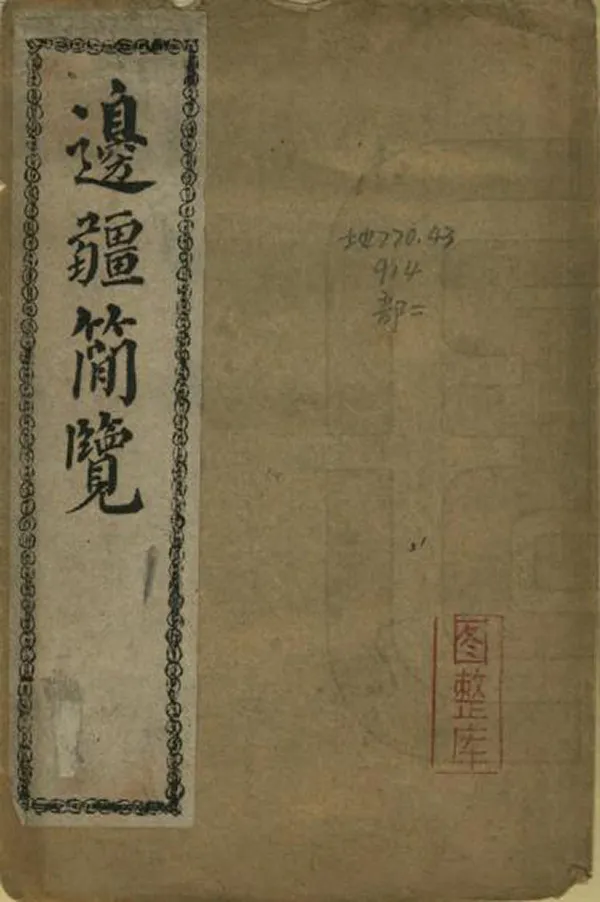 邊疆簡覽
地770.43
914
部二
图整库